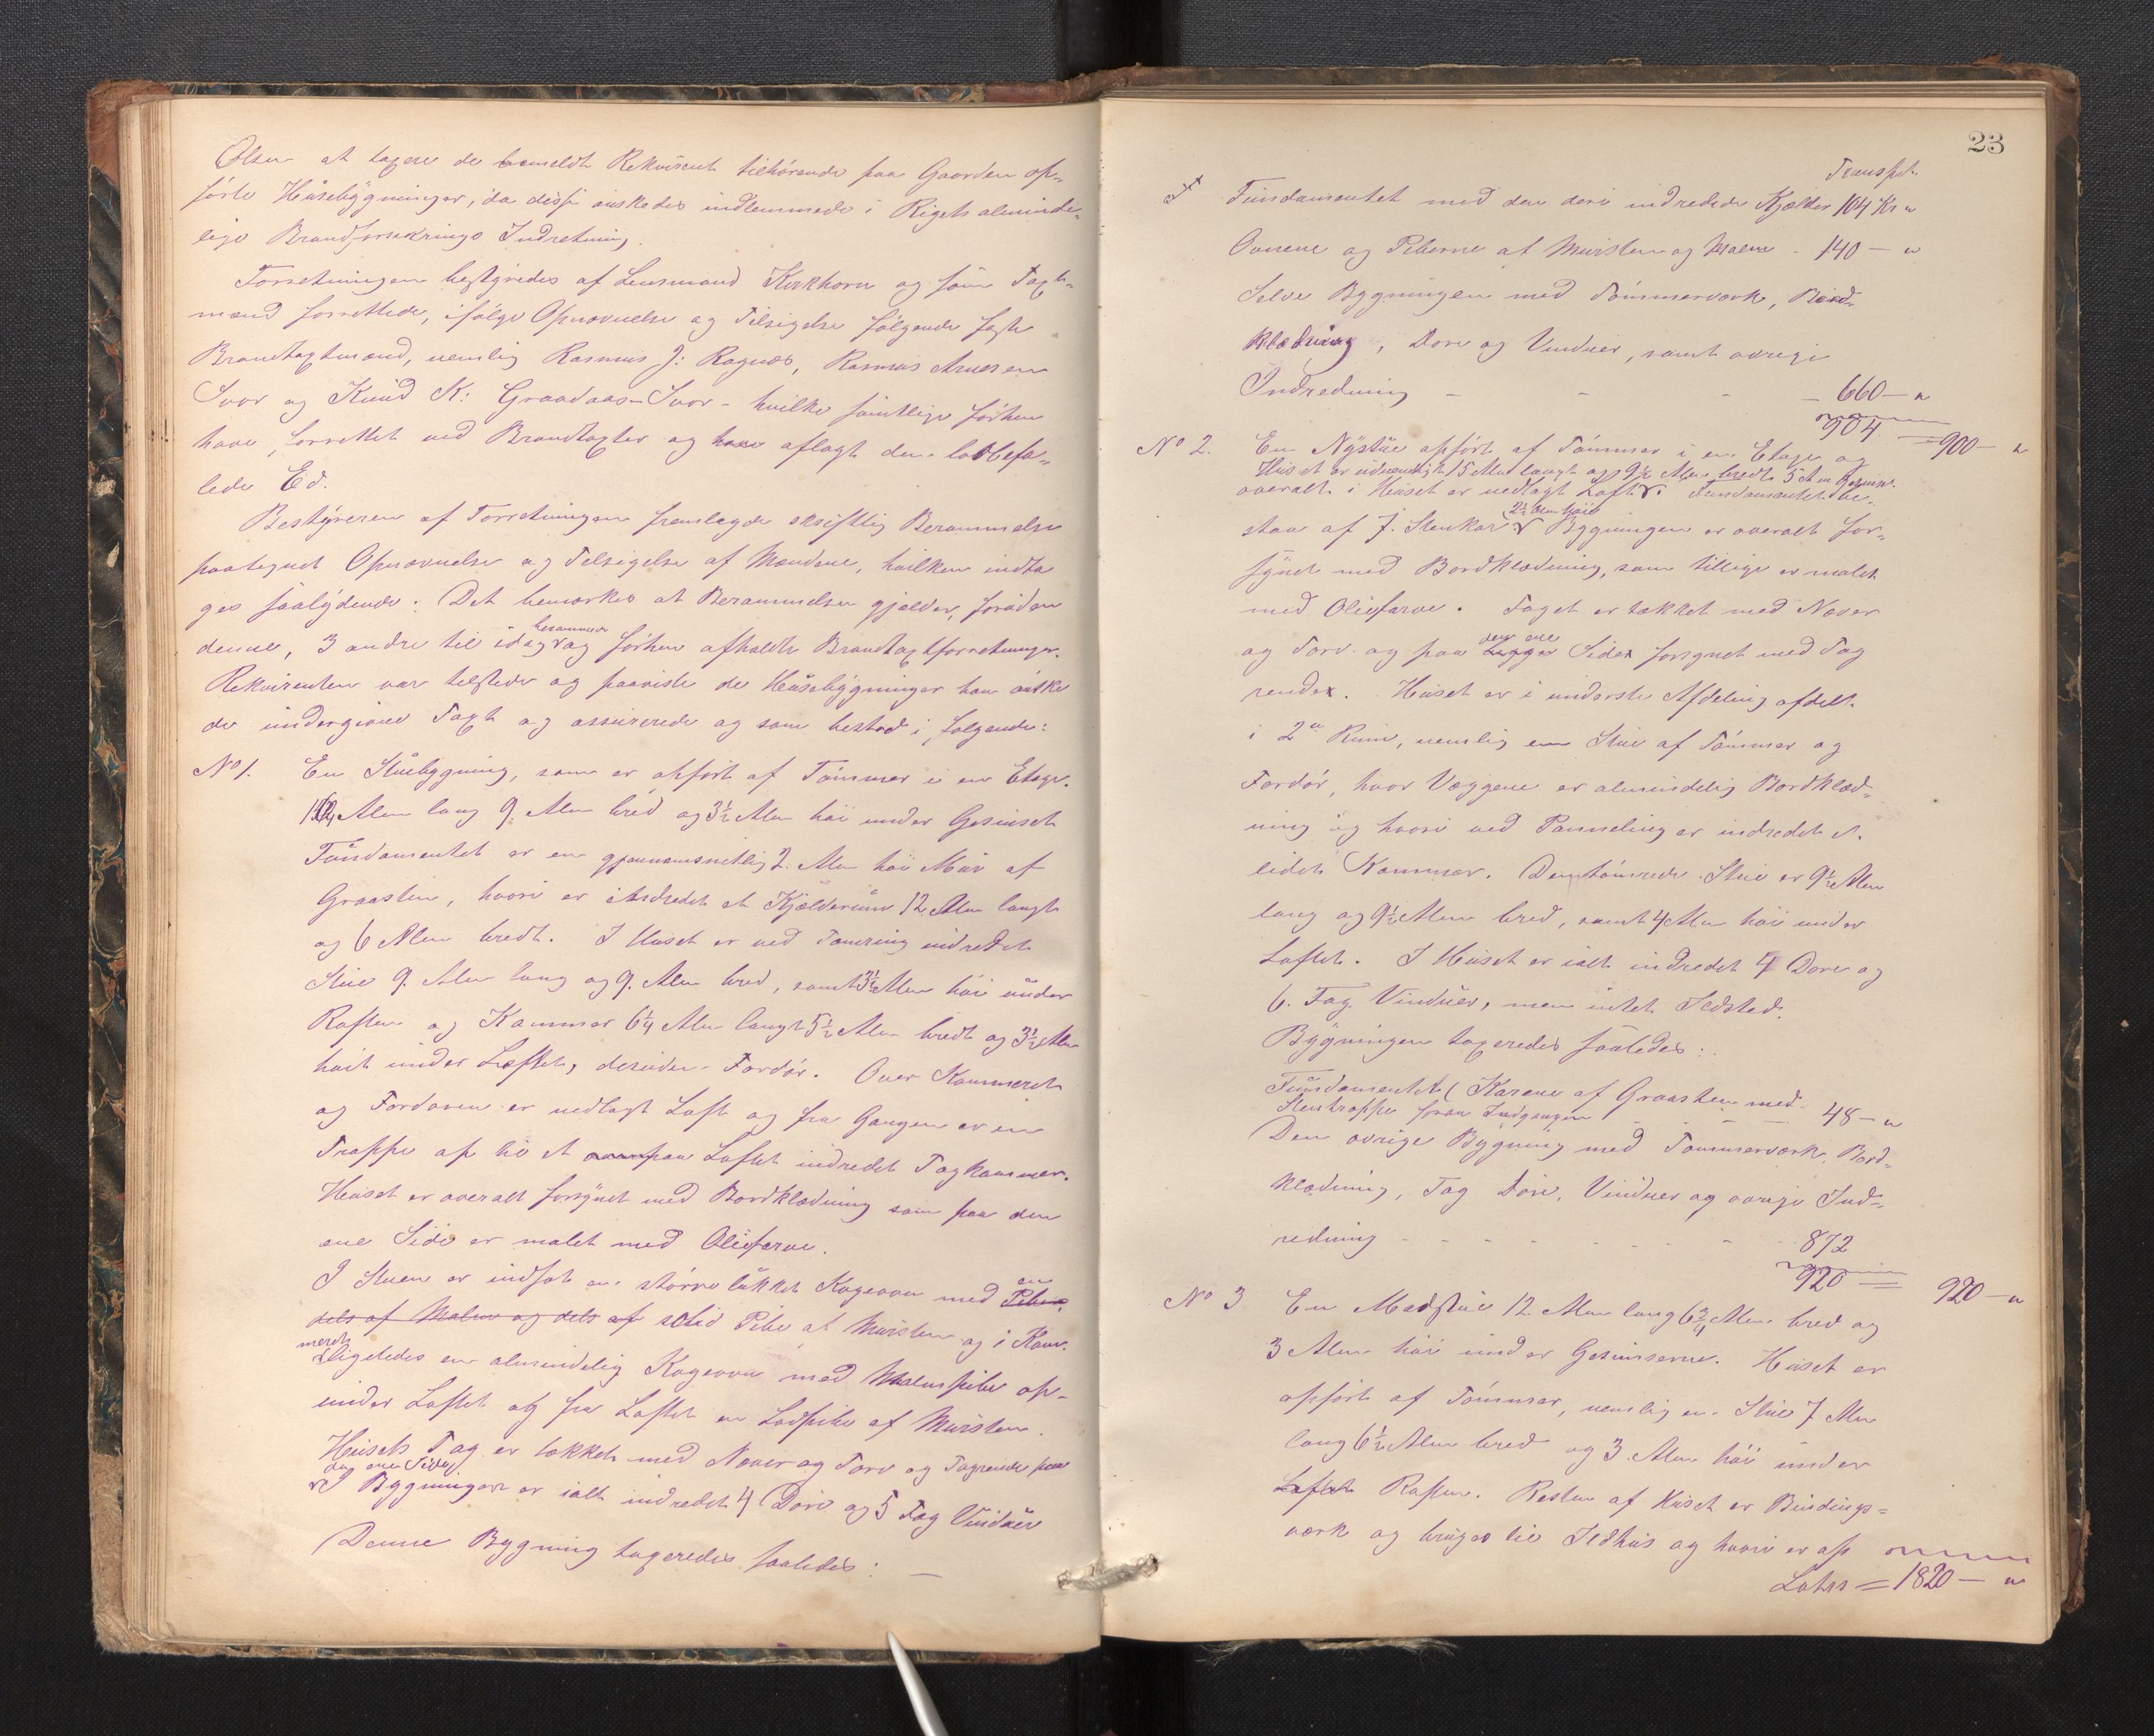 Olsen at taxere de bemeldt Rekvirent tilhörende paa Gaarden op-
förte Huusebygninger, da disse önskedes indlemmede i Rigets alminde-
lige Brandforsikrings Indretning.
Forretningen bestyredes af Lensmand Kirkhorn og som Taxt-
mænd forrettede, ifölge Opnævnelse og Tilsigelse fölgende faste
Brandtaxtmænd, nemlig Rasmus J: Ragnæs, Rasmus Arnesen
Svor og Knud K: Graadaas-Svor - hvilke samtlige förhen
have forrettet ved Brandtaxter og have aflagt den lovbefa-
lede Ed.
Bestyreren af Forretningen fremlagde skriftlig Berammelse
paategnet Opnævnelse og Tilsigelse af Mændene, hvilken indta
ges saalydende: Det bemærkes at Berammelsen gjælder, foruden
denne, 3 andre til idag og förhen afholdte Brandtaxtforretninger.
berammede
Rekvirenten var tilstede og paaviste de Huusebygninger han önske
de undergivne Taxt og assurerede og som bestod i fölgende:
No 1. En Stuebygning, som er opfört af Tömmer i en Etage.
Alen lang 9 Alen bred og 3½ Alen höi under Gesimset
Fundamentet er en gjennemsnitlig 2 Alen höi Mur af
Graasten, hvori er indredet et Kjælderrum 12 Alen langt
og 6 Alen bredt. I Huset er ved Tömring indredet
Stue 9 Alen lang og 9 Alen bred, samt 3½ Alen höi under
Raften og Kammer 6¼ Alen langt 5½ Alen bredt og 3½ Alen
höit under Loftet, desuden Fordör. Over Kammeret
og Fordören er nedlagt Loft og fra Gangen er en
Trappe op til et paa Loftet indredet Tagkammer.
Huset er overalt forsynet med Bordklædning som paa den
ene Side er malet med Oliefarve.
I Stuen er indsat en större lukket Kogeovn med en
dels af Malm og dels af solid Pibe af Mursten og i Kam-
meret ligeledes en almindelig Kogeovn med Malmpibe op-
under Loftet og fra Loftet en Lodpibe af Mursten.
Husets Tag er tækket med Næver og Torv og Tagrende paa
den ene Side
I Bygningen er ialt indredet 4 Döre og 5 Fag Vinduer
Denne Bygning taxeredes saaledes: —
23
Transpt.
Fundamentet med den deri indredede Kjælder 104 Kr "
Ovnene og Piberne af Mursten og Malm - 140 — "
Selve Bygningen med Tömmerværk, Bord-
klædning, Döre og Vinduer, samt övrige
Indredning - - - - 660 — "
904 = 900 — "
No 2. En Nystue opfört af Tömmer i en Etage og
Huset er udvendigt 15 Alen langt og 9½ Alen bredt 5 Alen Gesims.
overalt i Huset er nedlagt Loft. Fundamentet be-
2½ Alen höie
staar af 7. Stenkar. Bygningen er overalt for-
synet med Bordklædning, som tillige er malet
med Oliefarve. Taget er tækket med Næver
og Torv og paa begge Sider forsynet med Tag
den ene
render. Huset er i underste Afdeling afdelt
i 2de Rum, nemlig en Stue af Tömmer og
Fordör, hvor Væggene er almindelig Bordklæd-
ning og hvori ved Panneling er indredet et
lidet Kammer. Den tömrede Stue er 9½ Alen
lang og 9½ Alen bred, samt 4 Alen höi under
Loftet. I Huset er ialt indredet 4 Döre og
6. Fag Vinduer, men intet Ildsted.
Bygningen taxeredes saaledes:
Fundamentet (Karene af Graasten med
Stentrappe foran Indgangen - - - 48 — "
Den övrige Bygning med Tömmerværk, Bord-
klædning, Tag Döre, Vinduer og övrige Ind-
redning - - - - - - - 872
920 = 920 — "
No 3 En Madstue 12 Alen lang 6¾ Alen bred og
3 Alen höi under Gesimserne. Huset er
opfört af Tömmer, nemlig en Stue 7 Alen
lang 6½ Alen bred og 3 Alen höi under
Loftet Raften. Resten af Huset er Bindings-
værk og bruges til Ildhus og hvori er op
Latus = 1820 — "